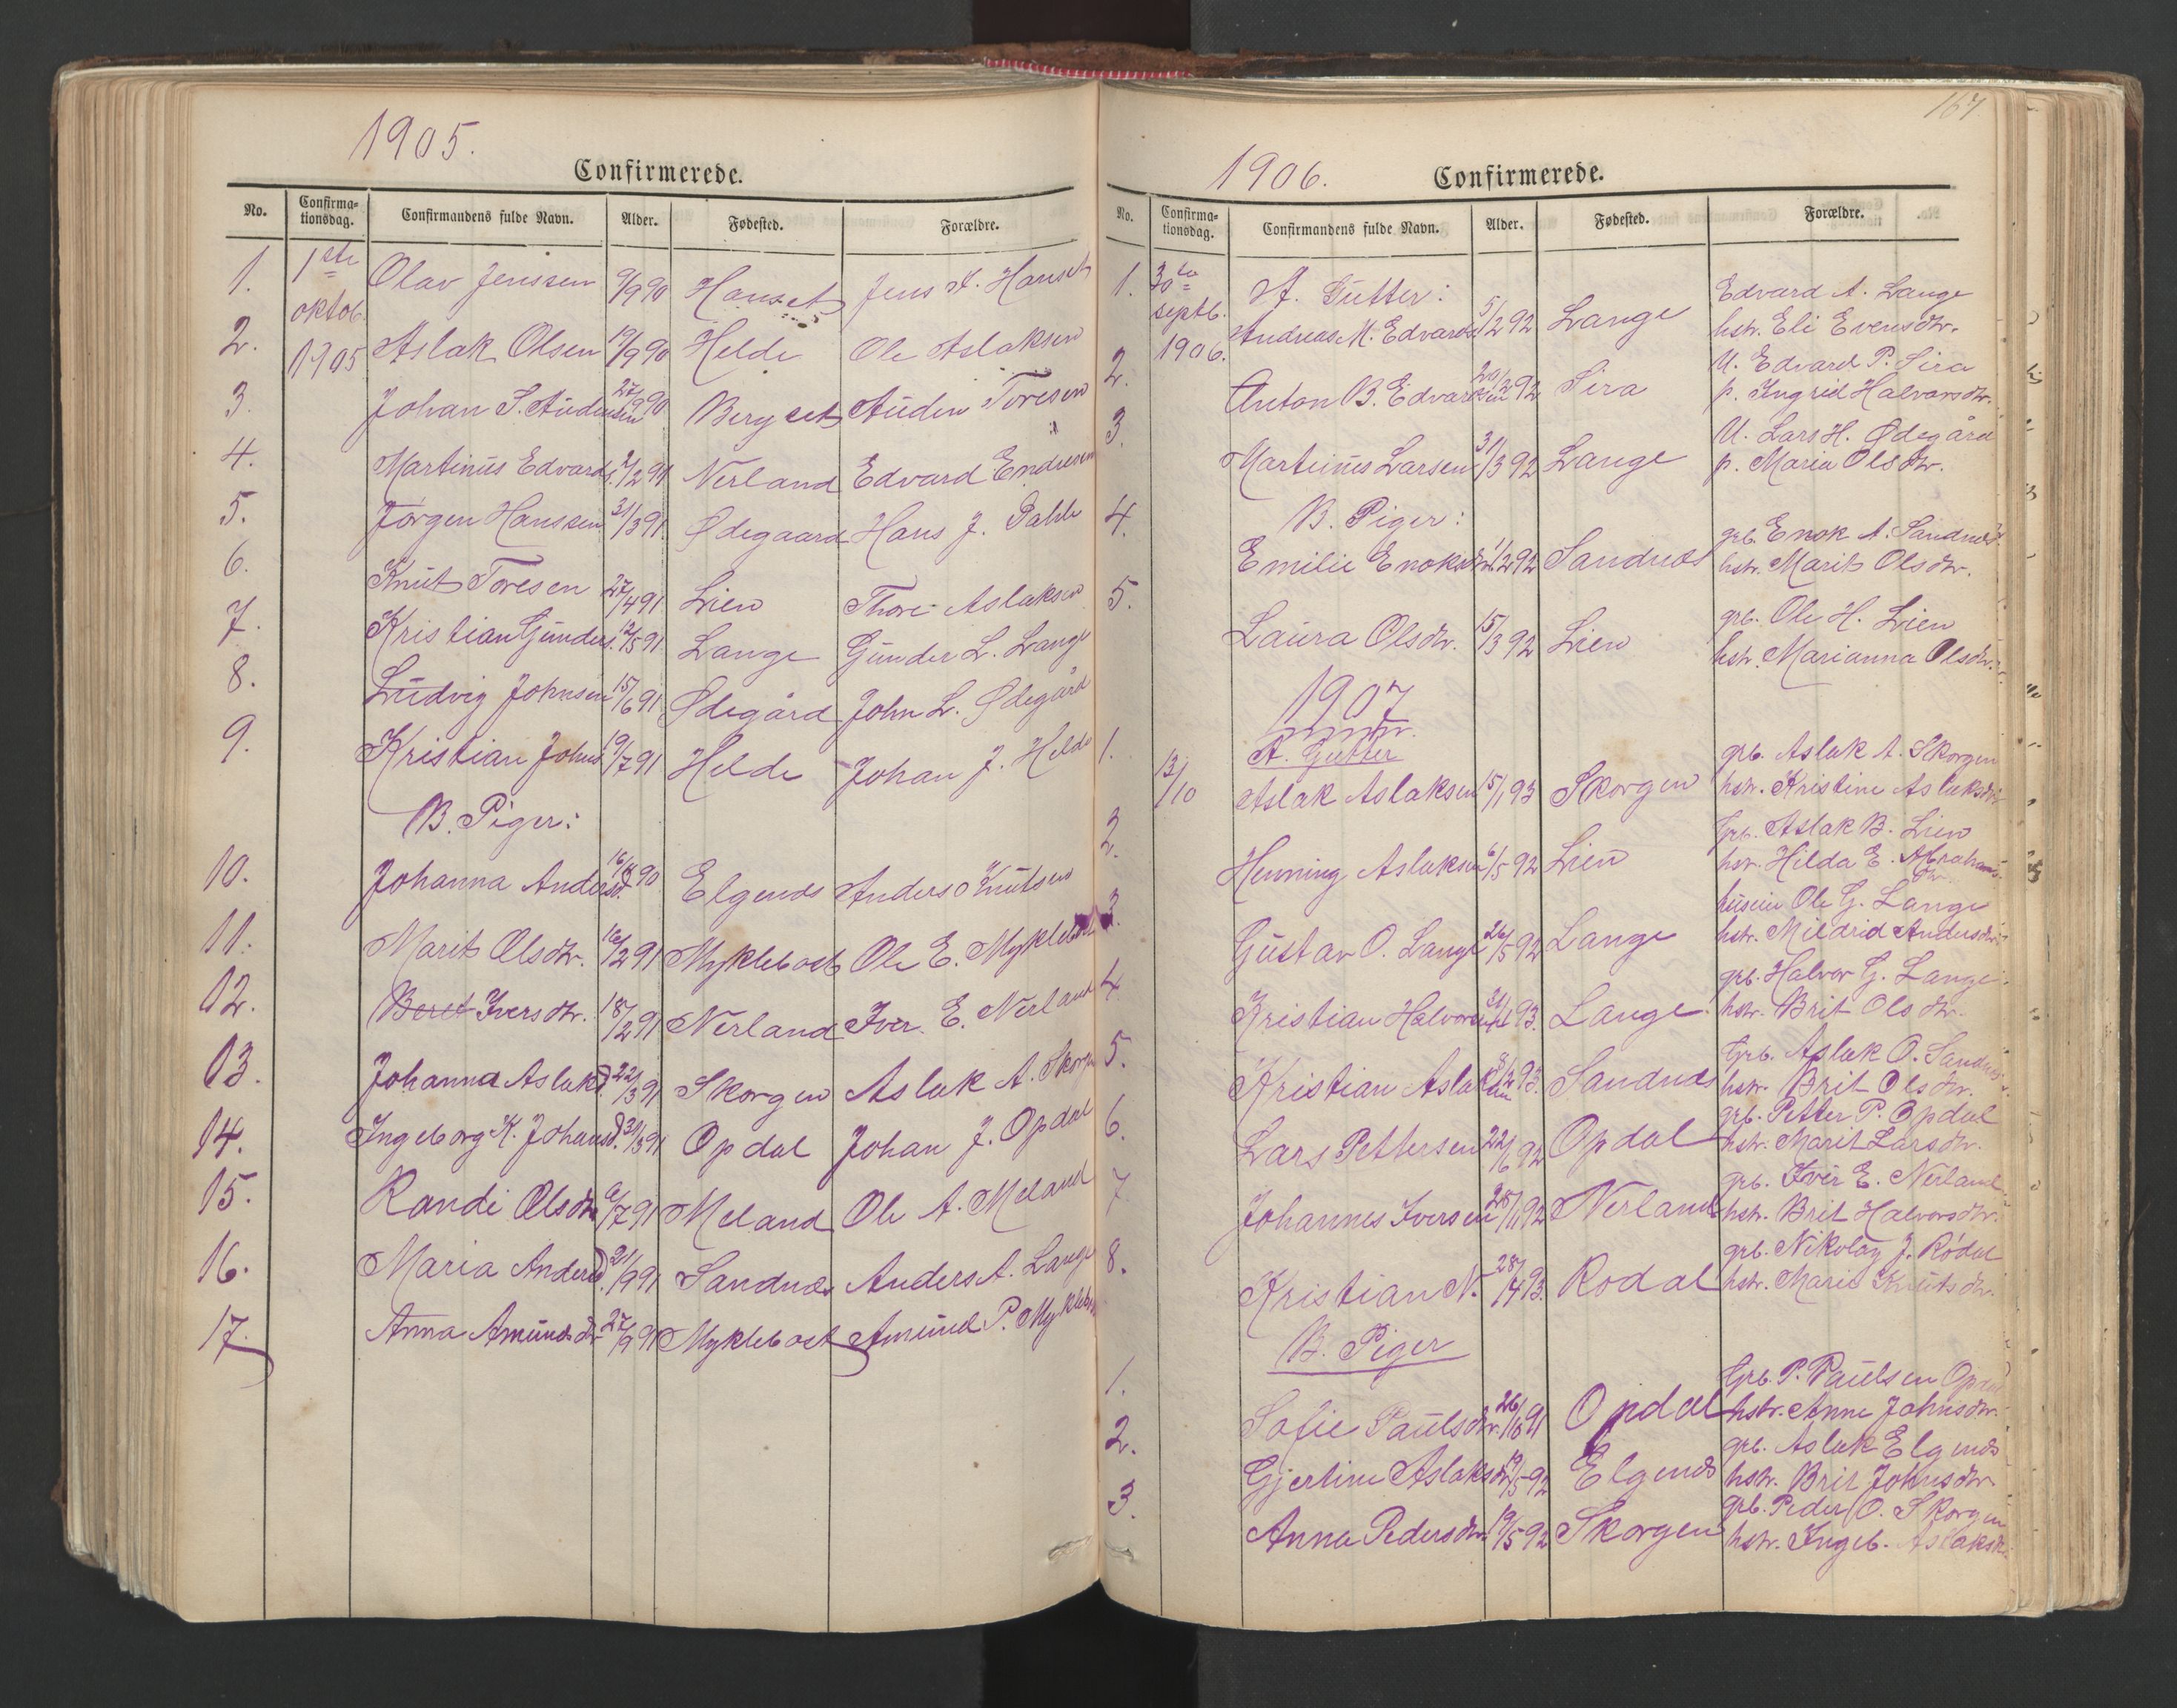 1905.
Confirmerede.
No. Confirma-tionsdag. Confirmandens fulde Navn. Alder. Fødested. Forældre.
1. 1ste Olav Jenssen 9/9 90 Hanset Jens A. Hanset
oktob.
2. 1905 Aslak Olsen 19/9 90 Helde Ole Aslaksen
3. Johan S. Audensen 27/9 90 Bergset Auden Toresen
4. Martinus Edvards. 2/2 91 Nerland Edvard Endresen
5. Jørgen Hanssen 31/3 91 Ødegaard Hans J. Dahle
6. Knut Toresen 27/4 91 Lien Thore Aslaksen
7. Kristian Gunders. 12/5 91 Lange Gunder L. Lange
8. Ludvig Johnsen 15/6 91 Ødegård John L. Ødegård
9. Kristian Johns 19/7 91 Helde Johan J. Helde
B. Piger:
10. Johanna Andersd. 90 Elgenes Anders Knutsen
11. Marit Olsdtr. 16/2 91 Myklebost Ole E. Myklebost
12. Beret Iversdtr. 18/2 91 Nerland Iver E. Nerland
13. Johanna Aslaksd. 22/3 91 Skorgen Aslak A. Skorgen
14. Ingeborg K. Johansd. 31/3 91 Opdal Johan J. Opdal
15. Randi Olsdtr 9/7 91 Meland Ole A. Meland
16. Maria Andersd. 21/9 91 Sandnes Anders A. Lange
17. Anna Amundsdtr 27/9 91 Myklebost Amund P. Myklebost
167
1906.
Confirmerede.
No. Confirma-tionsdag. Confirmandens fulde Navn. Alder. Fødested. Forældre.
1. 30te A. Gutter: Edvard A. Lange
septb. Andreas M. Edvards. 5/2 92 Lange hstr. Eli Evensdtr.
1906.
2. U. Edvard P. Sira
Anton B. Edvardsen 20/2 92 Sira p. Ingrid Halvorsdtr.
3. U. Lars H. Ødegård
Martinus Larsen 31/3 92 Lange p. Maria Olsdtr.
B. Piger:
4. grb. Enok A. Sandnes
Emilie Enoksdtr. 1/2 92 Sandnes hstr. Marit Olsdtr.
5. grb. Ole H. Lien
Laura Olsdtr. 15/3 92 Lien hstr. Marianna Olsdtr.
1907
A. Gutter
1. 13/10 grb. Aslak A. Skorgen
Aslak Aslaksen 15/1 93 Skorgen hstr. Kristine Aslaksdtr
2. Grb. Aslak B. Lien
Henning Aslaksen 6/5 92 Lien hstr. Hilda E. Abrahamsdtr
3. husm Ole G. Lange
Gustav O. Lange 26/5 92 Lange hstr. Mildrid Andersdtr.
4. grb. Halvor G. Lange
Kristian Halvorsen 93. Lange hstr. Brit Olsdtr.
5. Grb. Aslak O. Sandnes
Kristian Aslaksen 93. Sandnes hstr. Brit Olsdtr.
6. grb. Petter P. Opdal
Lars Pettersen 22/6 92 Opdal hstr. Marit Larsdtr.
7. grb. Iver E. Nerland
Johannes Iversen 28/11 92 Nerland hstr. Brit Halvorsdtr.
8. grb. Nikolay J. Rødal
Kristian N. 28/4 93. Rødal hstr. Marit Knutsdtr.
B. Piger
1. Grb. P. Paulsen Opdal
Sofie Paulsdtr. 26/10 91 Opdal hstr. Anne Johnsdtr.
2. grb. Aslak Elgenes
Gjertine Aslaksdtr 5 92 Elgenes hstr. Brit Johnsdtr
3. grb. Peder O. Skorgen
Anna Pedersdtr. 19/5 92 Skorgen hstr. Ingeb. Aslaksdtr.